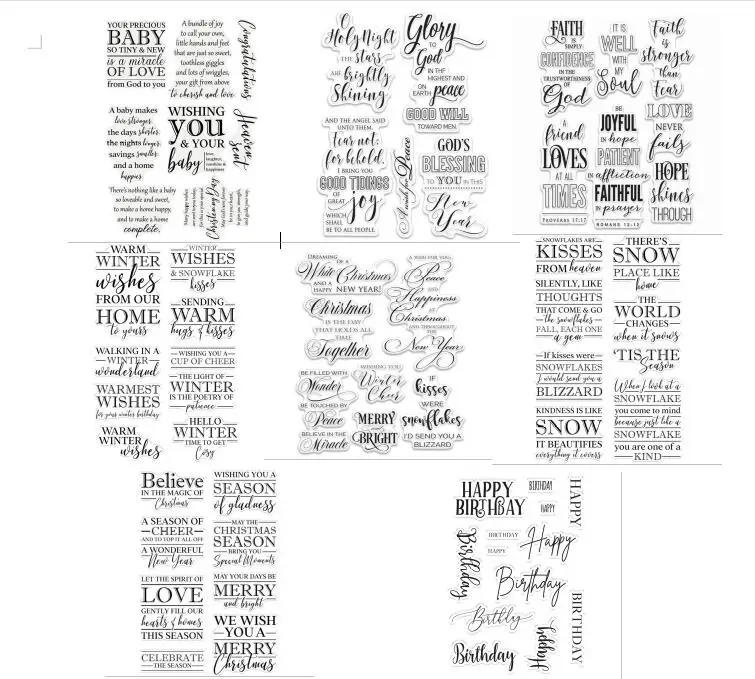 YOUR PRECIOUS
BABY
SO TINY & NEW
is a miracle
OF LOVE
from God to you
A bundle of joy
to call your own,
little hands and feet
that are just so sweet,
toothless giggles
and lots of wriggles,
your gift from above
to cherish and love
Congratulations
A baby makes
love stronger
the days shorter
the nights longer
savings smaller
and a home
happier
WISHING
you
& YOUR
baby
love,
laughter,
sunshine &
happiness
Heaven
sent
There's nothing like a baby
so loveable and sweet,
to make a home happy,
and to make a home
complete.
Christening Day
O
Holy Night
THE stars
ARE brightly
Shining
AND THE ANGEL SAID
UNTO THEM.
Fear not:
for behold,
I BRING YOU
GOOD TIDINGS
OF GREAT joy
WHICH
SHALL
BE TO ALL PEOPLE.
Glory
TO
God
IN THE
HIGHEST AND
ON EARTH peace
GOOD WILL
TOWARD MEN.
GOD'S
BLESSING
TO YOU IN THIS
New
Year
A wish for Peace
FAITH
IS SIMPLY
CONFIDENCE
IN THE
TRUSTWORTHINESS
OF
God
IT IS
WELL
WITH
MY
Soul
Faith
is
stronger
than
Fear
a
friend
LOVES
AT ALL
TIMES
PROVERBS 17:17
BE
JOYFUL
in hope
PATIENT
in affliction
FAITHFUL
in prayer
ROMANS 12:12
LOVE
NEVER
fails
HOPE
shines
THROUGH
WARM
WINTER
wishes
FROM OUR
HOME
to yours
WALKING IN A
WINTER
wonderland
WARMEST
WISHES
for your winter birthday
WARM
WINTER
wishes
WINTER
WISHES
& SNOWFLAKE
kisses
SENDING
WARM
hugs & kisses
WISHING YOU A
CUP OF CHEER
THE LIGHT OF
WINTER
IS THE POETRY OF
patience
HELLO
WINTER
TIME TO GET
Cosy
DREAMING
OF A
White Christmas
AND A
HAPPY NEW YEAR!
Christmas
IS THE DAY
THAT HOLDS ALL
TIME
Together
BE FILLED WITH
Wonder
BE TOUCHED BY
Peace
BELIEVE IN THE
Miracle
A WISH FOR YOU,
Peace
AND
Happiness
AT
Christmas
AND THROUGHOUT
THE
New Year
WISHING YOU
Winter
Cheer
MERRY
and
BRIGHT
IF
kisses
WERE
snowflakes
I'D SEND YOU A
BLIZZARD
SNOWFLAKES ARE
KISSES
FROM heaven
SILENTLY, LIKE
THOUGHTS
THAT COME & GO
the snowflakes
FALL, EACH ONE
a gem
If kisses were
SNOWFLAKES
I would send you a
BLIZZARD
KINDNESS IS LIKE
SNOW
IT BEAUTIFIES
everything it covers
THERE'S
SNOW
PLACE LIKE
home
THE
WORLD
CHANGES
when it snows
'TIS THE
Season
When I look at a
SNOWFLAKE
you come to mind
because just like a
SNOWFLAKE
you are one of a
KIND
Believe
IN THE MAGIC OF
Christmas
A SEASON OF
CHEER
AND TO TOP IT ALL OFF
A WONDERFUL
New Year
LET THE SPIRIT OF
LOVE
GENTLY FILL OUR
hearts & homes
THIS SEASON
CELEBRATE
THE SEASON
WISHING YOU A
SEASON
of gladness
MAY THE
CHRISTMAS
SEASON
BRING YOU
Special Moments
MAY YOUR DAYS BE
MERRY
and bright
WE WISH
YOU A
MERRY
Christmas
HAPPY
BIRTHDAY
BIRTHDAY
HAPPY
HAPPY
Birthday
BIRTHDAY
HAPPY
Happy
Birthday
Birthday
BIRTHDAY
Happy
Birthday